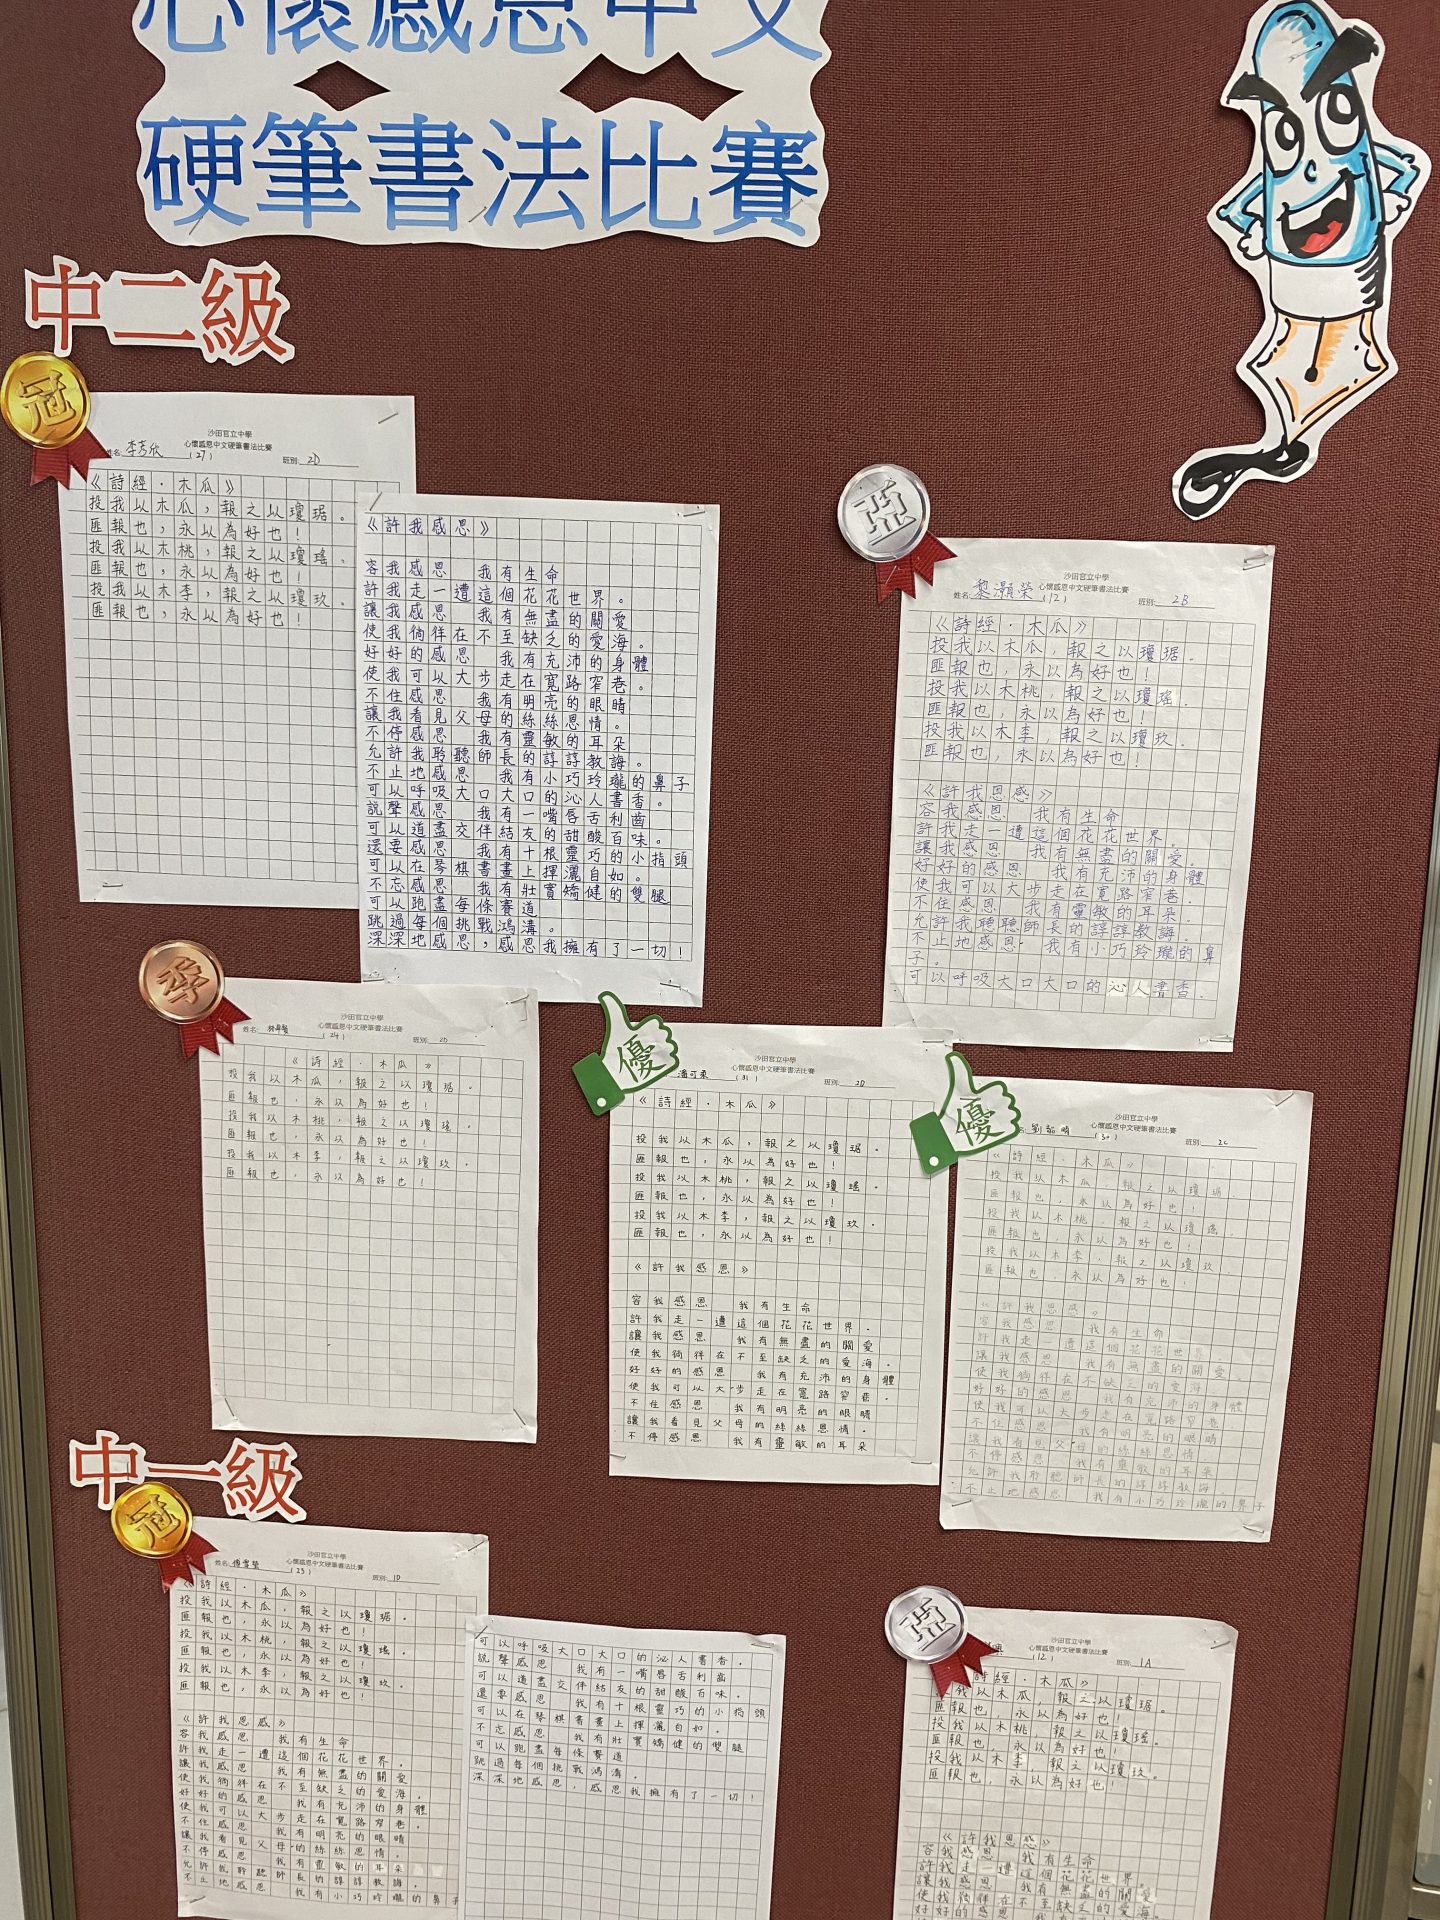 心懷感恩中文
硬筆書法比賽
中二級
冠
沙田官立中學
心懷感恩中文硬筆書法比賽
姓名: 李芳欣 (27) 班別: 2D
《詩經·木瓜》
投我以木瓜，報之以瓊琚。
匪報也，永以為好也！
投我以木桃，報之以瓊瑤。
匪報也，永以為好也！
投我以木李，報之以瓊玖。
匪報也，永以為好也！
《許我感恩》
容我感恩 我有生命
許我走一遭這個花花世界。
讓我感恩 我有無盡的關愛
使我徜徉在不至缺乏的愛海。
好好的感恩 我有充沛的身體
使我可以大步走在寬路窄巷。
不住感恩 我有明亮的眼睛
讓我看見父母的絲絲恩情。
不停感恩 我有靈敏的耳朵
允許我聆聽師長的諄諄教誨。
不止地感恩 我有小巧玲瓏的鼻子
可以呼吸大口大口的沁人書香。
說聲感恩 我有一嘴唇舌利齒
可以道盡交伴結友的甜酸百味。
還要感恩 我有十根靈巧的小指頭
可以在琴棋書畫上揮灑自如。
不忘感恩 我有壯實矯健的雙腿
可以跑盡每條賽道
跳過每個挑戰鴻溝。
深深地感恩，感恩我擁有了一切！
亞
沙田官立中學
心懷感恩中文硬筆書法比賽
姓名: 黎灝榮 (12) 班別: 2B
《詩經·木瓜》
投我以木瓜，報之以瓊琚。
匪報也，永以為好也！
投我以木桃，報之以瓊瑤。
匪報也，永以為好也！
投我以木李，報之以瓊玖
匪報也，永以為好也！
《許我恩感》
容我感恩 我有生命
許我走一遭這個花花世界。
讓我感恩 我有無盡的關愛。
好好的感恩 我有充沛的身體
使我可以大步走在寬路窄巷
不住感恩 我有靈敏的耳朵
允許我聽聽師長的諄諄教誨。
不止地感恩 我有小巧玲瓏的鼻
子。
可以呼吸大口大口的沁人書香。
季
沙田官立中學
心懷感恩中文硬筆書法比賽
姓名: (24) 班別: 2D
《詩經·木瓜》
投我以木瓜，報之以瓊琚。
匪報也，永以為好也！
投我以木桃，報之以瓊瑤。
匪報也，永以為好也！
投我以木李，報之以瓊玖。
匪報也，永以為好也！
優
沙田官立中學
心懷感恩中文硬筆書法比賽
潘可柔 (31) 班別: 2D
《詩經·木瓜》
投我以木瓜，報之以瓊琚。
匪報也，永以為好也！
投我以木桃，報之以瓊瑤。
匪報也，永以為好也！
投我以木李，報之以瓊玖。
匪報也，永以為好也！
《許我感恩》
容我感恩 我有生命
許我走一遭這個花花世界。
讓我感恩 我有無盡的關愛
使我徜徉在不至缺乏的愛海。
好好的感恩 我有充沛的身體
使我可以大步走在寬路窄巷。
不住感恩 我有明亮的眼睛
讓我看見父母的絲絲恩情。
不停感恩 我有靈敏的耳朵
優
沙田官立中學
心懷感恩中文硬筆書法比賽
劉韜晴 (30) 班別: 2C
《詩經·木瓜》
投我以木瓜，報之以瓊琚。
匪報也，永以為好也！
投我以木桃，報之以瓊瑤。
匪報也，永以為好也！
投我以木李，報之以瓊玖
匪報也，永以為好也！
《許我恩感》
容我感恩 我有生命
許我走一遭這個花花世界
讓我感恩 我有無盡的關愛
使我徜徉在不缺乏的愛海
好好的感恩 我有充沛的身體
使我可以大步走在寬路窄巷
不住感恩 我有明亮的眼睛
讓我看見父母的絲絲恩情
不停感恩 我有靈敏的耳朵
允許我聆聽師長的諄諄教誨
不止地感恩 我有小巧玲瓏的鼻子
中一級
冠
沙田官立中學
心懷感恩中文硬筆書法比賽
姓名: (25) 班別: 1D
《詩經·木瓜》
投我以木瓜，報之以瓊琚。
匪報也，永以為好也！
投我以木桃，報之以瓊瑤。
匪報也，永以為好也！
投我以木李，報之以瓊玖。
匪報也，永以為好也！
《許我恩感》
容我感恩 我有生命
許我走一遭這個花花世界，
讓我感恩 我有無盡的關愛
使我徜徉在不至缺乏的愛海，
好好的感恩 我有充沛的身體
使我可以大步走在寬路窄巷，
不住感恩 我有明亮的眼睛
讓我看見父母的絲絲恩情，
不停感恩 我有靈敏的耳朵
允許我聆聽師長的諄諄教誨，
不止地感恩 我有小巧玲瓏的鼻子
可以呼吸大口大口的沁人書香，
說聲感恩 我有一嘴唇舌利齒
可以道盡交伴結友的甜酸百味，
還要感恩 我有十根靈巧的小指頭
可以在琴棋書畫上揮灑自如，
不忘感恩 我有壯實矯健的雙腿
可以跑盡每條賽道
跳過每個挑戰鴻溝，
深深地感恩，感恩我擁有了一切！
亞
沙田官立中學
心懷感恩中文硬筆書法比賽
(12) 班別: 1A
詩經·木瓜》
投我以木瓜，報之以瓊琚。
匪報也，永以為好也！
投我以木桃，報之以瓊瑤。
匪報也，永以為好也！
投我以木李，報之以瓊玖。
匪報也，永以為好也！
《許我恩感》
容我感恩 我有生命
許我走一遭這個花花世界。
讓我感恩 我有無盡的關愛
使我徜徉在不至缺乏的愛海。
好好的感恩